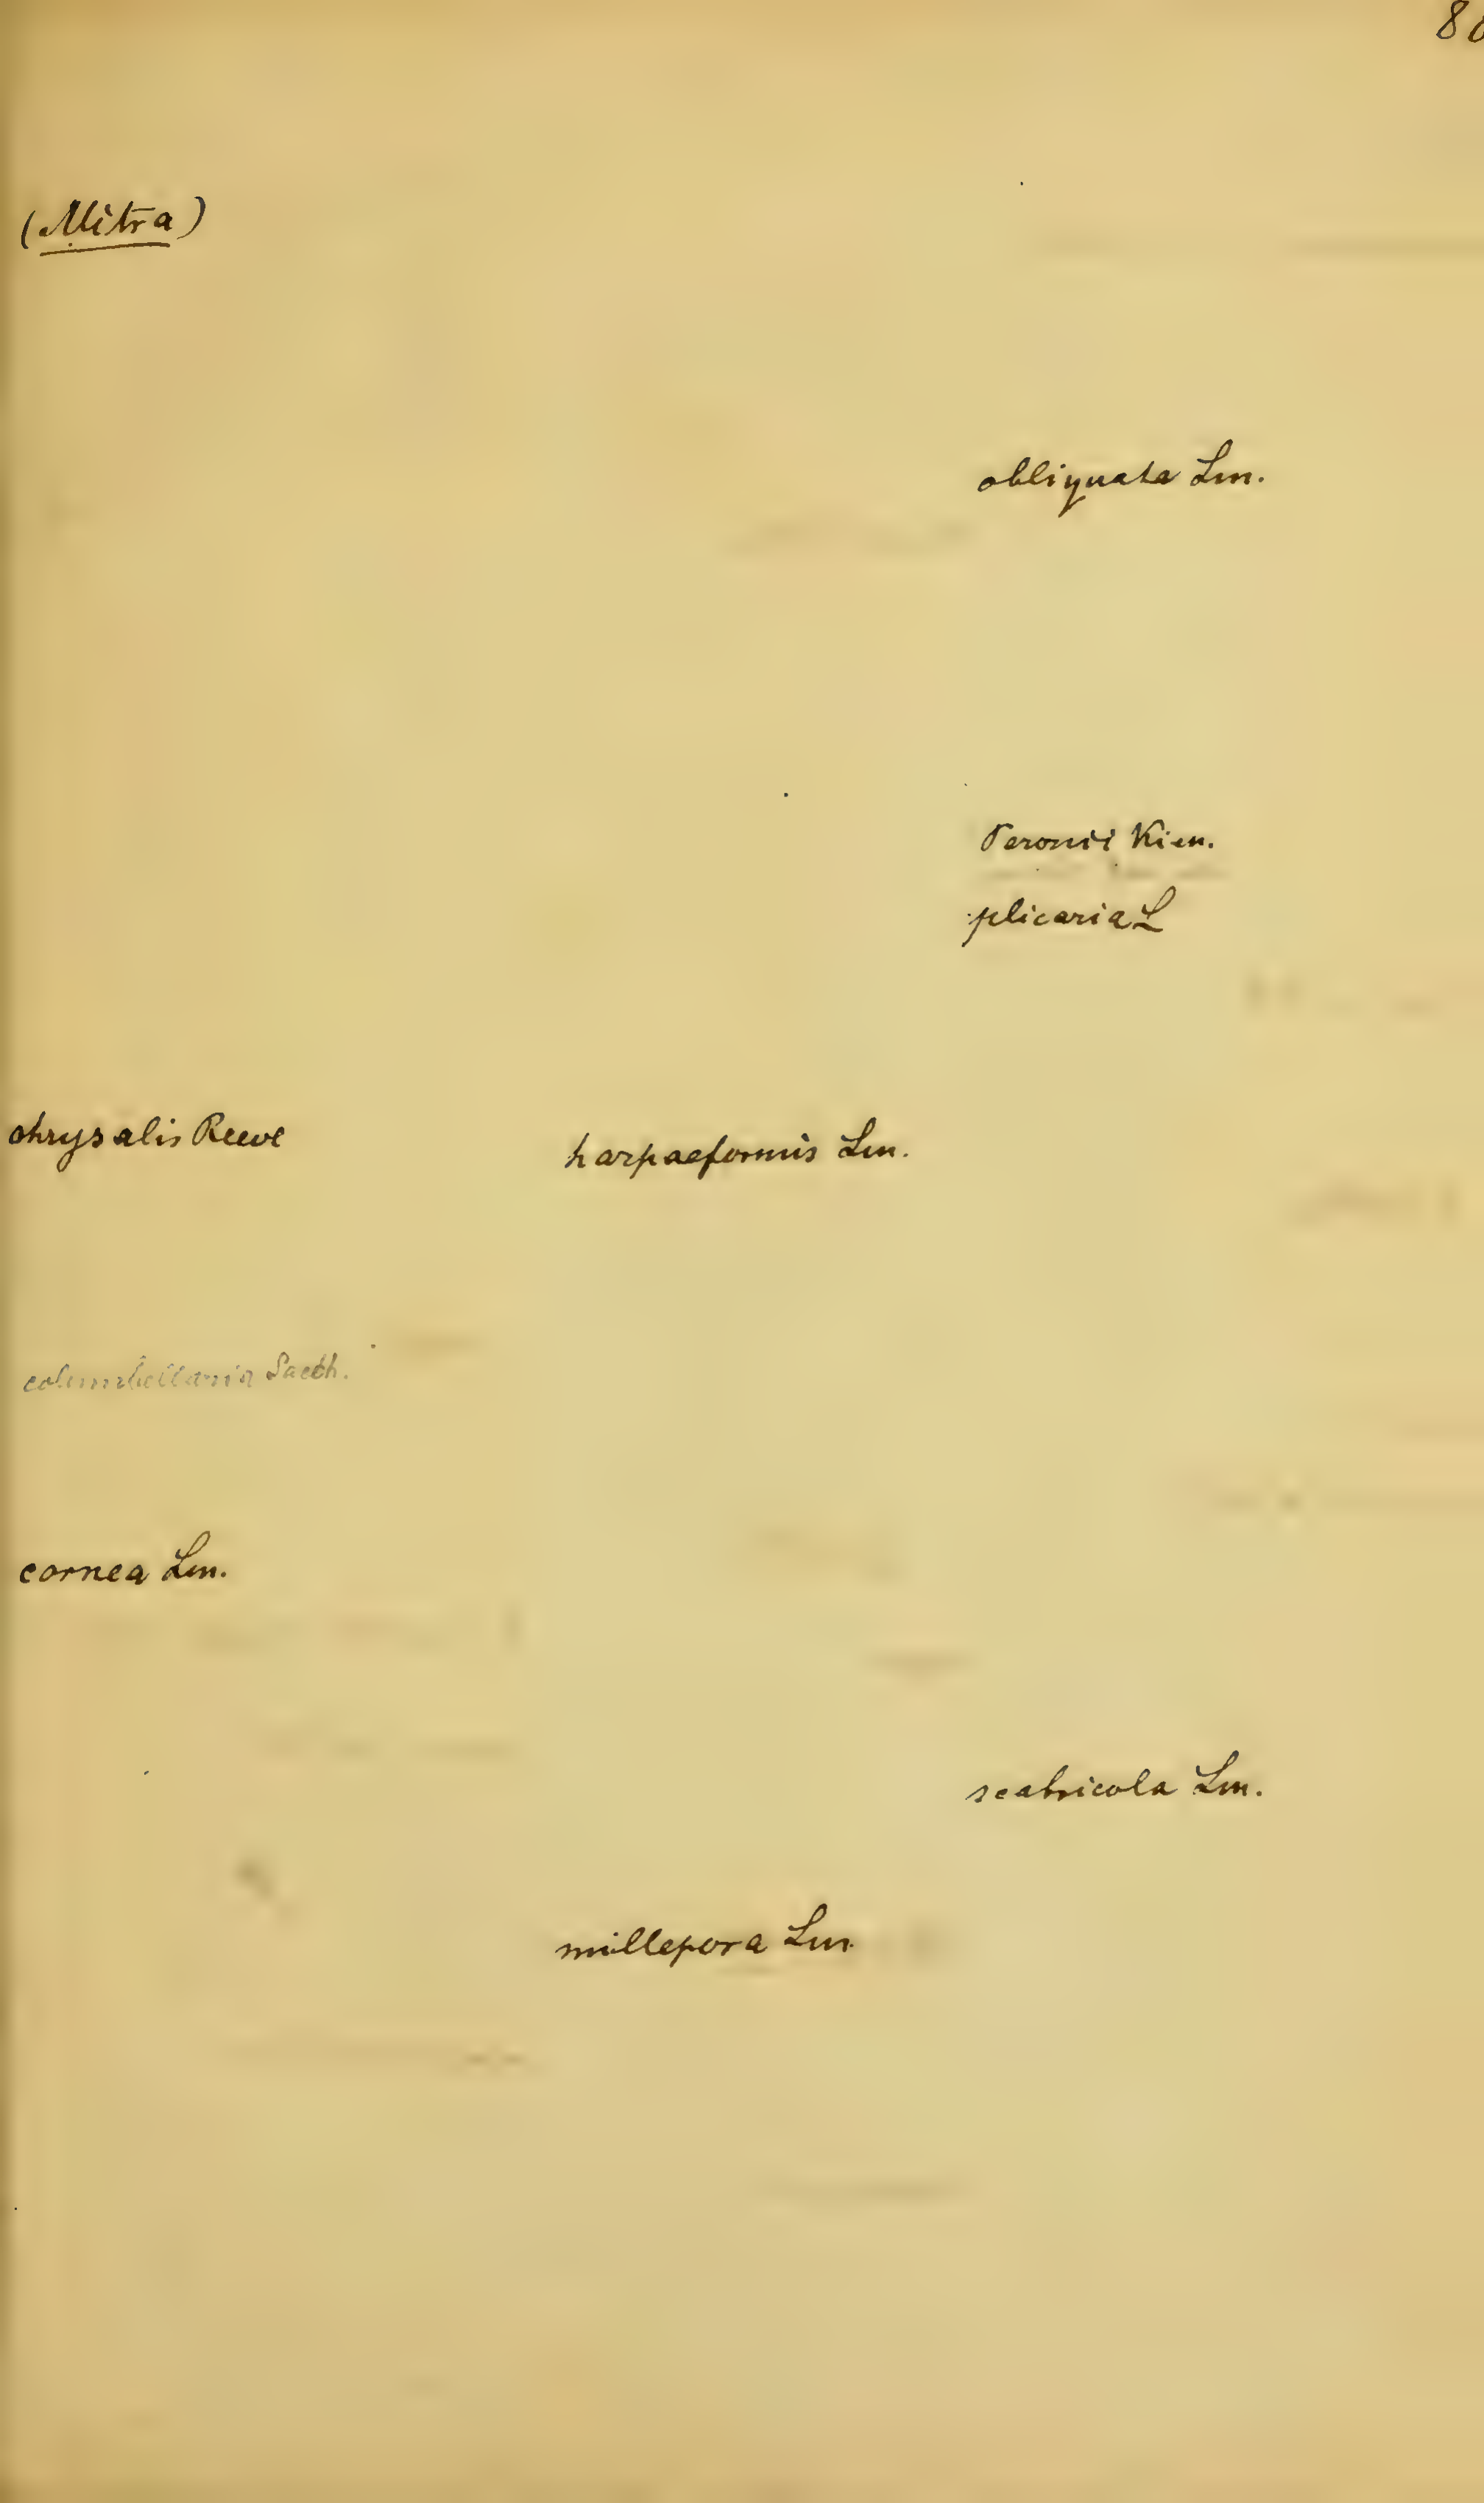 80
(Mitra)
obliquata Lm.
Peronii Kien.
plicaria L
chrysalis Reeve
harpaeformis Lm.
cornea Lm.
scabricola Lm.
millepora Lm.